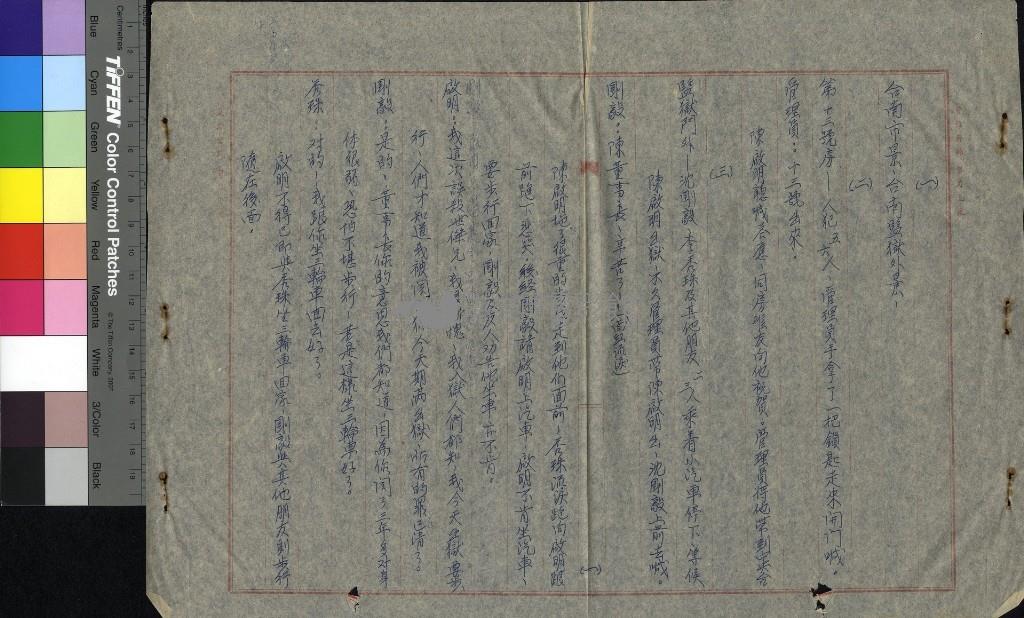 (一)
台南市景，台南監獄外景，
(二)
第十三號房—人犯五、六人，管理員手拿了一把鎖匙走來開門喊。
管理員：十三號出來。
陳啟明聽喊答應，同房難友向他祝賀，管理員待他帶到
(三)
監獄門外—沈剛毅、李秀珠及其他朋友二、三人乘著小汽車停下，等候
陳啟明出獄，不久管理員帶陳啟明出，沈剛毅上前去喊。
剛毅：陳董事長，辛苦了！
(一)
陳啟明地很重的步伐走到他們面前，秀珠流淚跑向啟明跟
前跪下悲哭，經剛毅請啟明上汽車，啟明不肯坐汽車，
要步行回家，剛毅及友人勸其他坐車亦不肯。
啟明：我這次，我入獄人們都知，我今天出獄要步
行，人們才知道我被關，今天期滿出獄，所有的罪已清了。
剛毅：是的，董事長你的意思我們都知道，因為你關了三年多身
体很弱，恐怕不堪步行，若是這樣坐三輪車好了。
秀珠：對的，我跟你坐三輪車回去好了。
啟明不得已即與秀珠坐三輪車回家，剛毅與其他朋友則步行
隨在後面。
Centimetres
TIFFEN Color Control Patches
© The Tiffen Company, 2007
Blue
Cyan
Green
Yellow
Red
Magenta
White
3/Color
Black